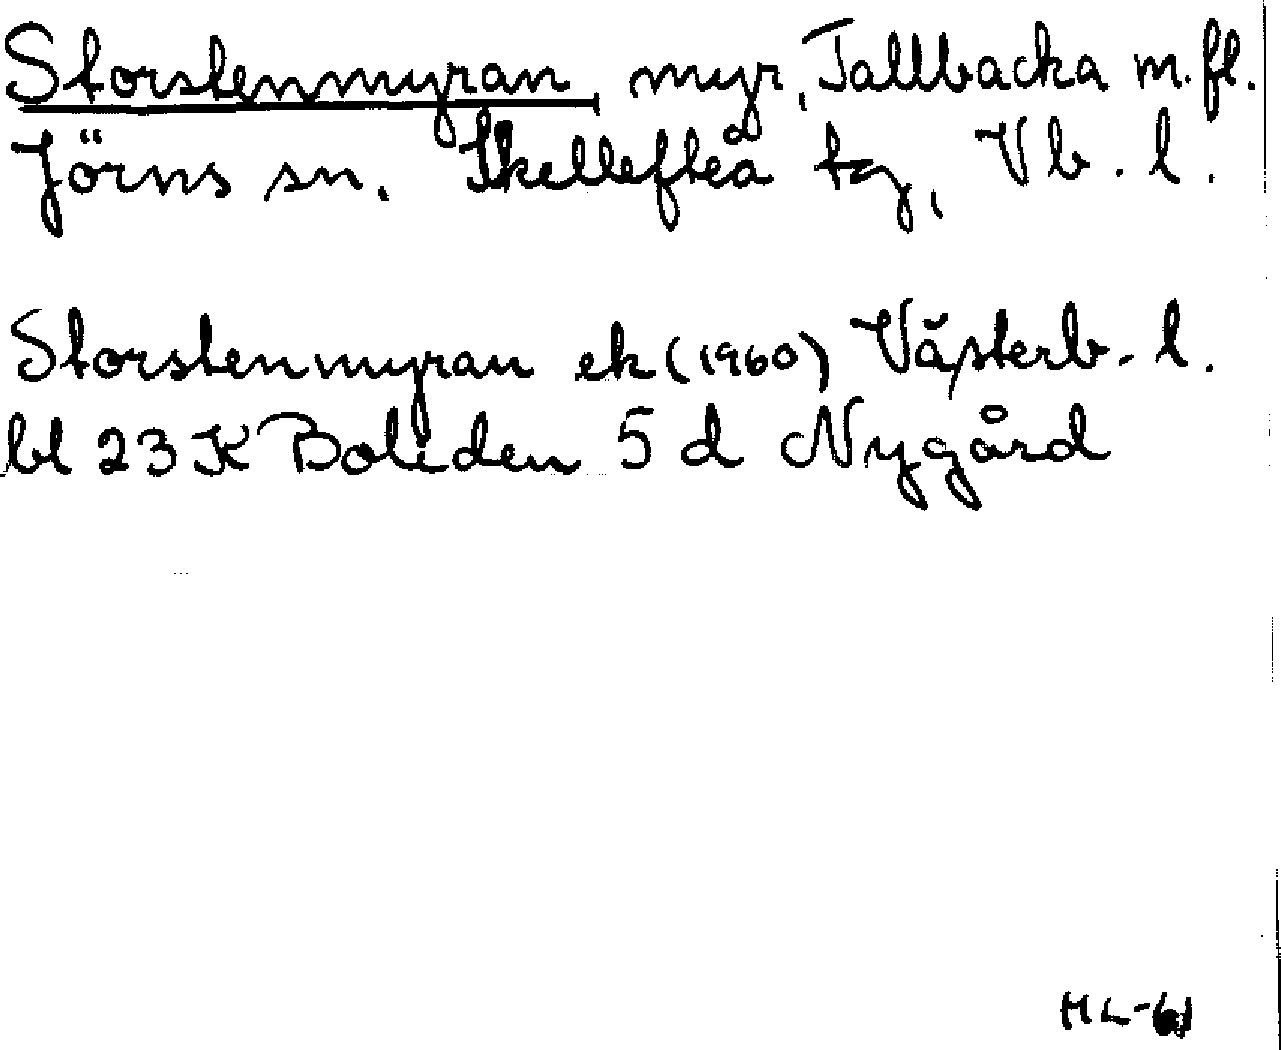 Storstenmyran, myr, Tallbacka m.fl.
Jörns sn. Skellefteå tg, Vb. l.
Storstenmyran ek (1960) Västerb. l.
bl 23 K Boliden 5 d Nygård
HL-61